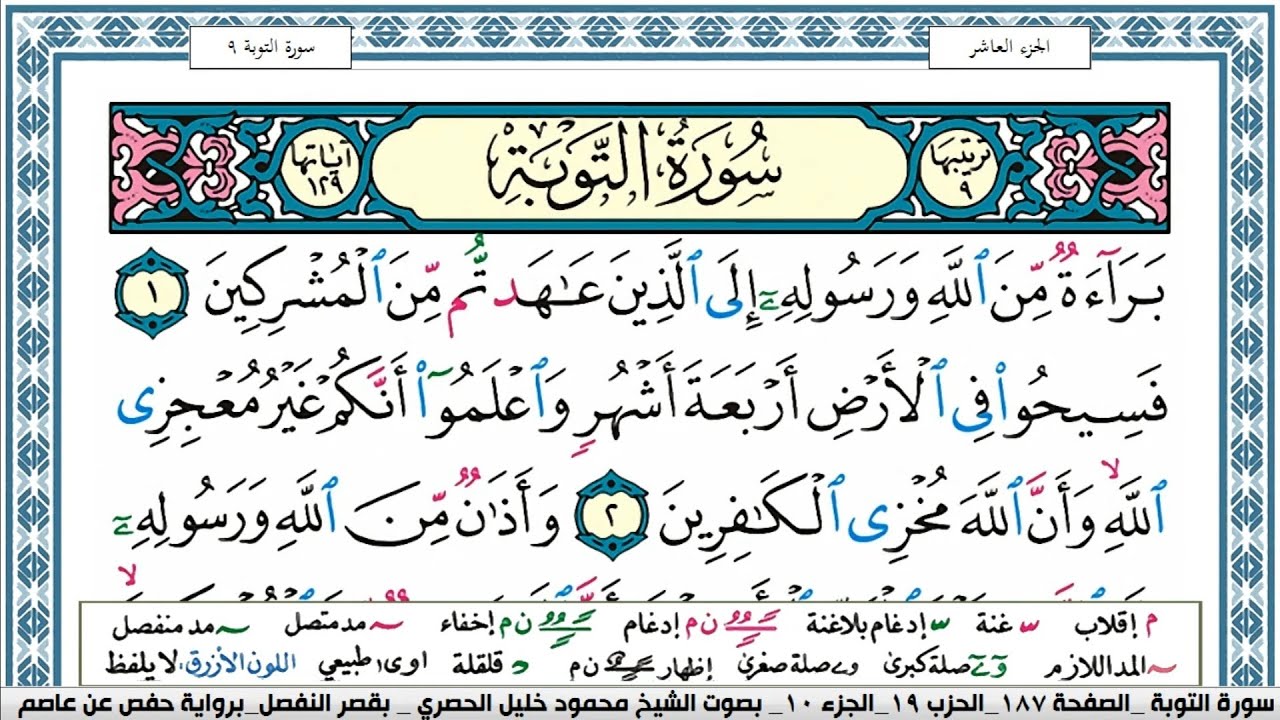 الجزء العاشر
سورة التوبة ٩
ترتيبها ٩
سُورَةُ التَّوْبَةِ
آياتها ١٢٩
بَرَآءَةٌ مِّنَ ٱللَّهِ وَرَسُولِهِۦٓ إِلَى ٱلَّذِينَ عَٰهَدتُّم مِّنَ ٱلْمُشْرِكِينَ ١
فَسِيحُوا۟ فِى ٱلْأَرْضِ أَرْبَعَةَ أَشْهُرٍ وَٱعْلَمُوٓا۟ أَنَّكُمْ غَيْرُ مُعْجِزِى
ٱللَّهِ ۙ وَأَنَّ ٱللَّهَ مُخْزِى ٱلْكَٰفِرِينَ ٢ وَأَذَٰنٌ مِّنَ ٱللَّهِ وَرَسُولِهِۦٓ
م إقلاب ـ غنة ـ إدغام بلاغنة ـ ن م إدغام ـ ن م إخفاء ـ مد متصل ـ مد منفصل
ـ المد اللازم ـ صلة كبرى و ے صلة صغرى إظهار ـ ن م د قلقلة اوى طبيعي اللون الأزرق: لا يلفظ
سورة التوبة _الصفحة ١٨٧_الحزب ١٩_الجزء ١٠_ بصوت الشيخ محمود خليل الحصري _ بقصر النفصل_برواية حفص عن عاصم